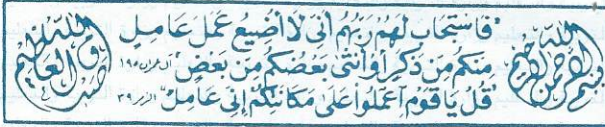 بسم الله الرحمن الرحيم
"فَاسْتَجَابَ لَهُمْ رَبُّهُمْ أَنِّى لَا أُضِيعُ عَمَلَ عَامِلٍ
مِنكُم مِّن ذَكَرٍ أَوْ أُنثَى بَعْضُكُم مِّن بَعْضٍ" آل عمران ١٩٥
"قُلْ يَا قَوْمِ اعْمَلُوا عَلَى مَكَانَتِكُمْ إِنِّى عَامِلٌ" الزمر ٣٩
صدق الله العظيم